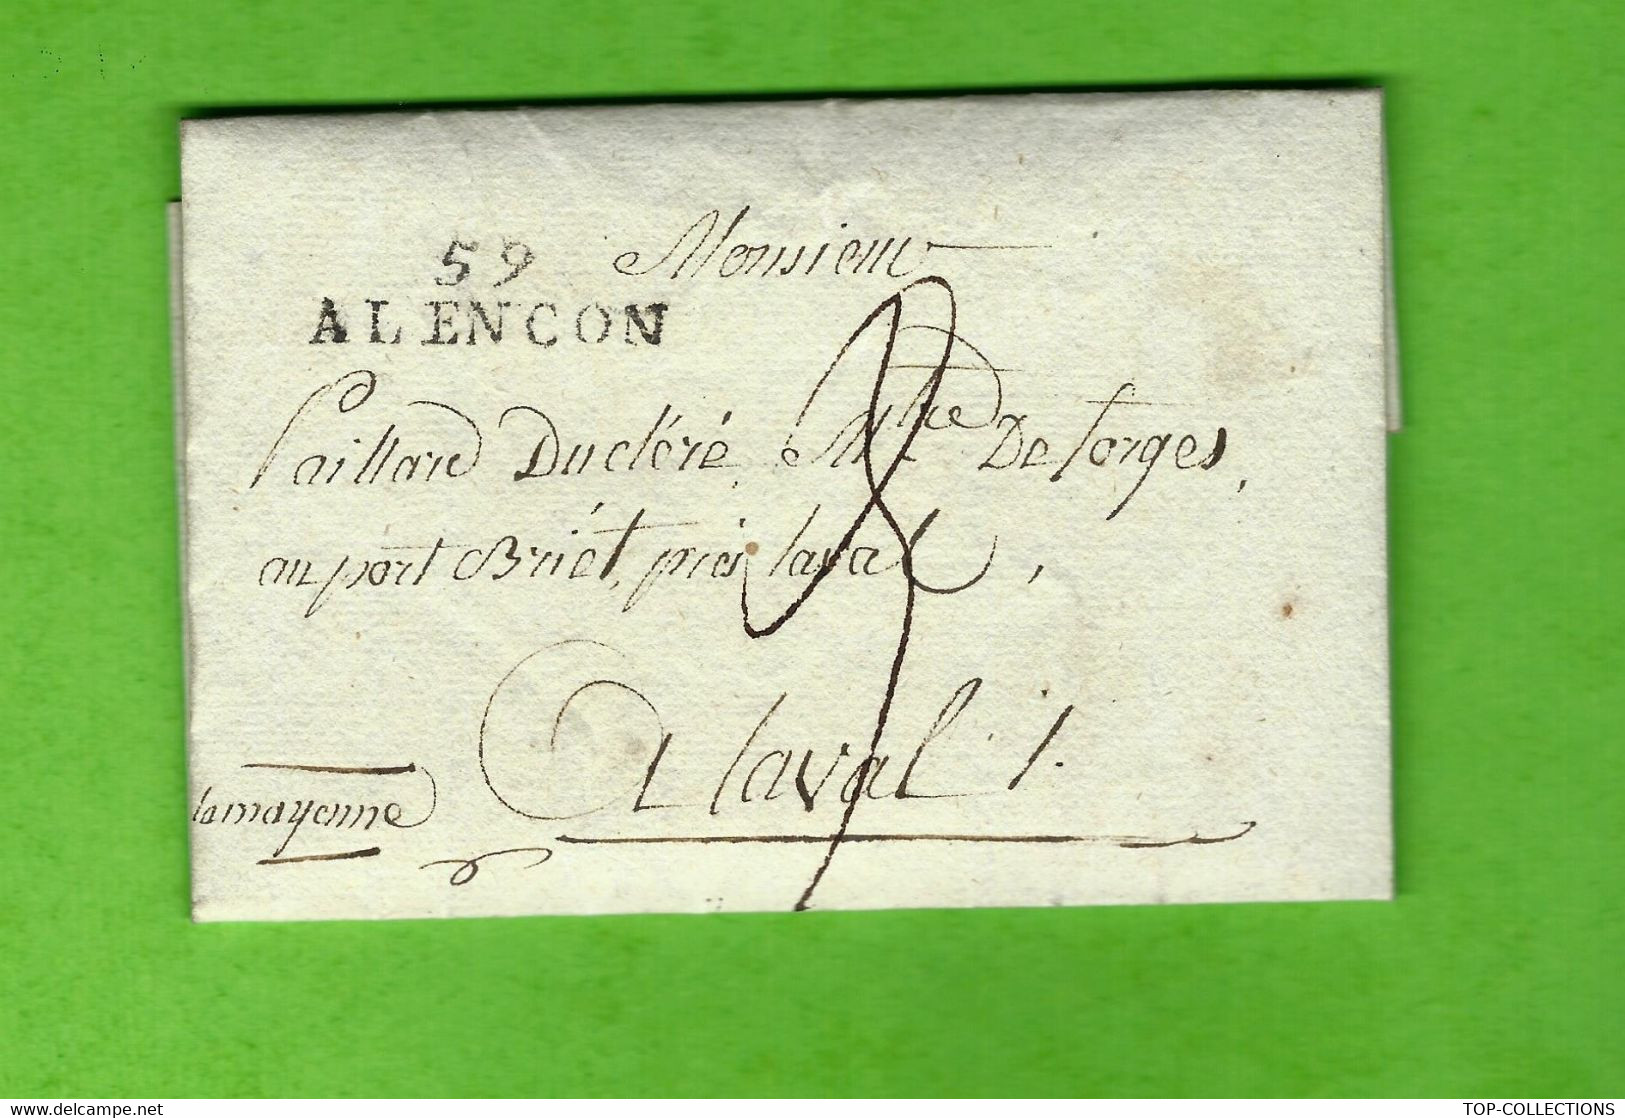 59
ALENCON
Monsieur
Paillard Ducléré, Mtre De forges,
au port Briet, près laval,
A laval
la mayenne
TOP-COLLECTIONS